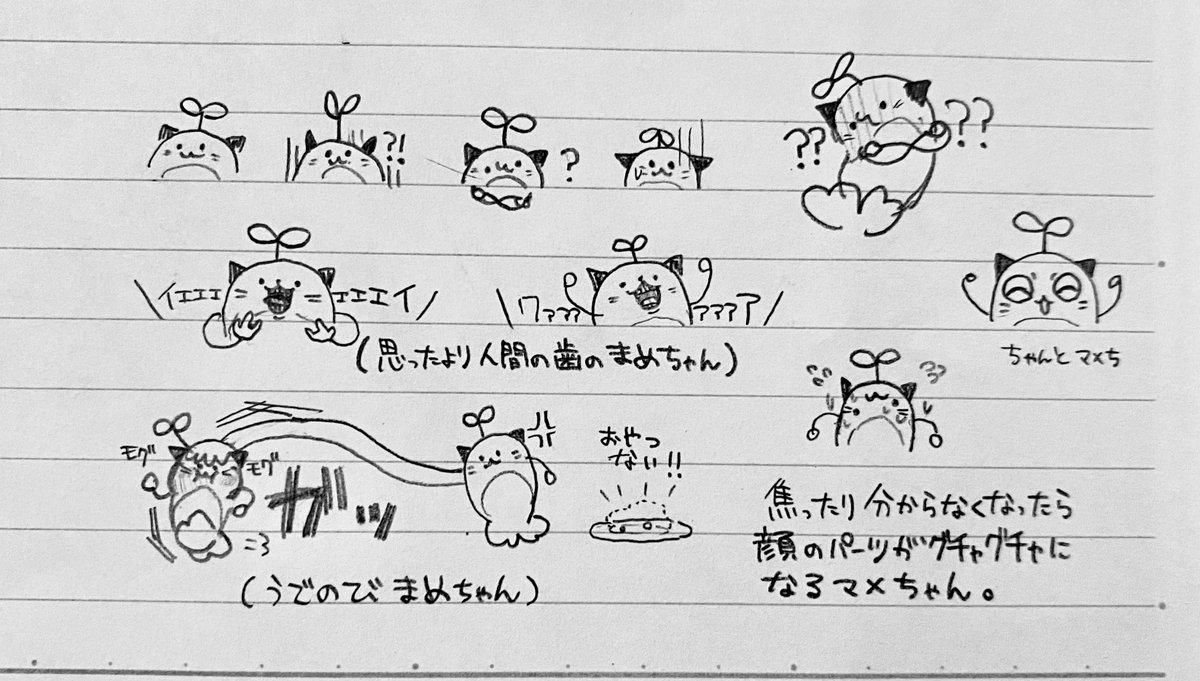 ?!
?
??
??
\イエエエ エエエイ/
\ワァァァ ァァァア/
(思ったより人間の歯のまめちゃん)
ちゃんとマメち
モグ
モグ
ガッ
おやつ
ない!!
(うでのび まめちゃん)
焦ったり分からなくなったら
顔のパーツがグチャグチャに
なるマメちゃん。